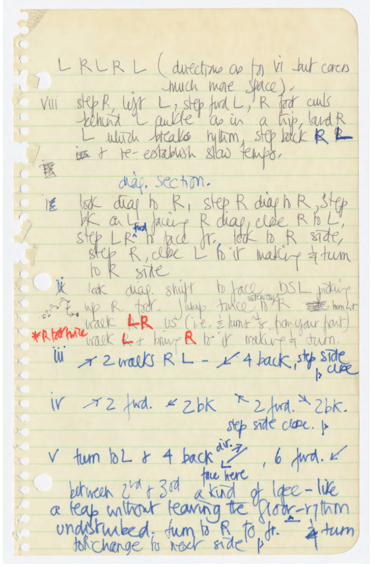 L R L R L ( directions as for vi but covers
much more space).
viii step R, lift L, step fwd L, R foot curls
behind L ankle as in a trip, land R
L which breaks rythm, step back R L
& re-establish slow tempo.
diag. section.
i look diag to R, step R diag R, step
bk on L facing R diag, close R to L,
step LR fwd to face fr. look to R side,
step R, close L to it making ¼ turn
to R side
ii look diag. shift to face DSL picking
up R foot. Jump twice R
walk LR us (i.e. ½ turn from your front)
*R foot twice
walk L & bring R to it making ¼ turn.
iii ↗ 2 walks R L – ↙ 4 back, step side
close
iv ↗ 2 fwd. ↙ 2bk ↖ 2 fwd. ↘ 2bk.
step side close.
v turn to L & 4 back dir. ↗ , 6 fwd. ↙
face here
between 2nd & 3rd a kind of lope – like
a leap without leaving the floor – rythm
undisturbed. turn to R to fr. ½ turn
for change to next side